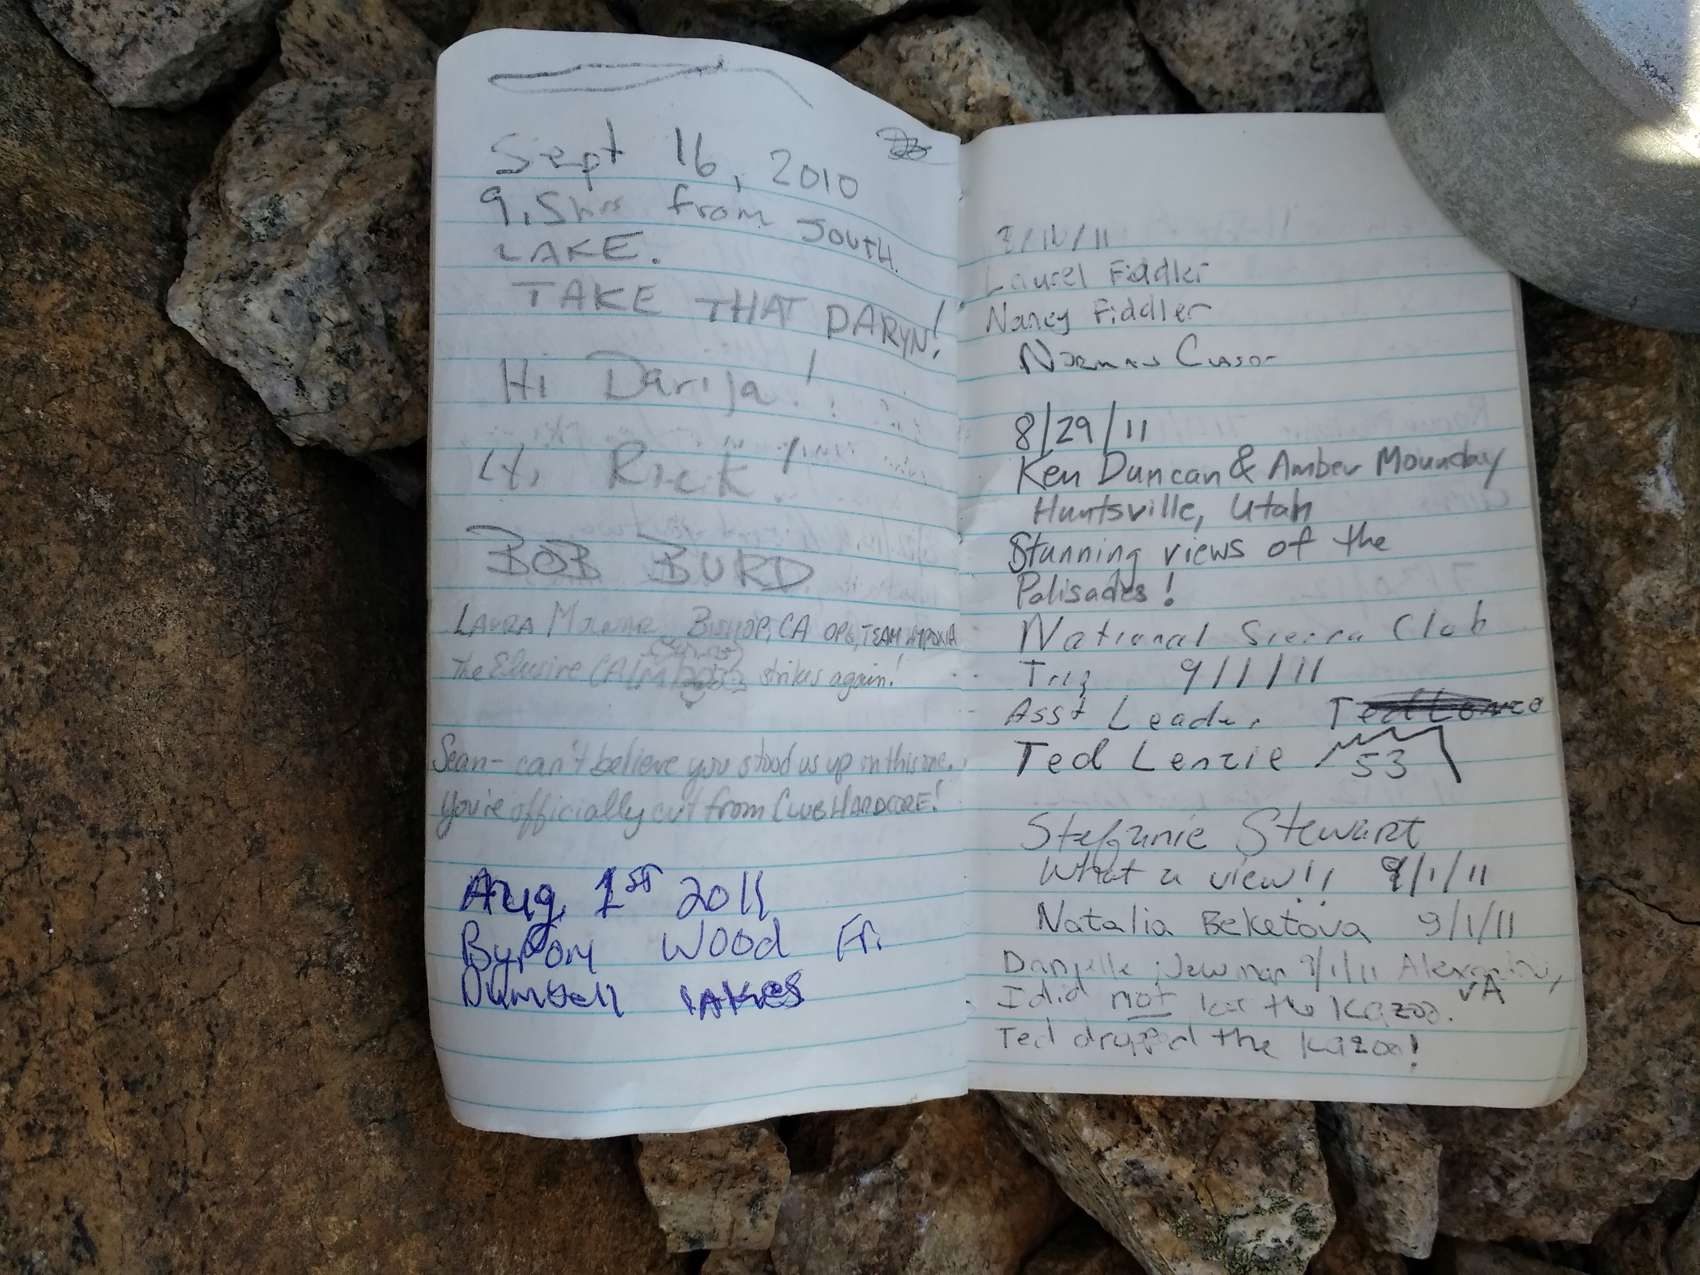 Sept 16, 2010
9.5hrs from SOUTH
LAKE.
TAKE THAT DARYN!
Hi Darija!
Hi Rick!
BOB BURD
LAURA MOLNAR BISHOP, CA OPG, TEAM HYPOXIA
The Elusive strikes again!
Sean- can't believe you stood us up on this one.
You're officially cut from CLUB HARDCORE!
Aug, 1st 2011
Byron Wood Fr.
Dumbell lakes
/11
Laurel Fiddler
Nancy Fiddler
8/29/11
Ken Duncan & Amber Mounday
Huntsville, Utah
Stunning views of the
Palisades!
National Sierra Club
Trip 9/1/11
Asst Leader
Ted Lenzie 53
Stefanie Stewart
What a view!! 9/1/11
Natalia Beketova 9/1/11
Danielle Newman 9/1/11 Alexandria,
VA
I did not lose the Kazoo.
Ted dropped the kazoo!